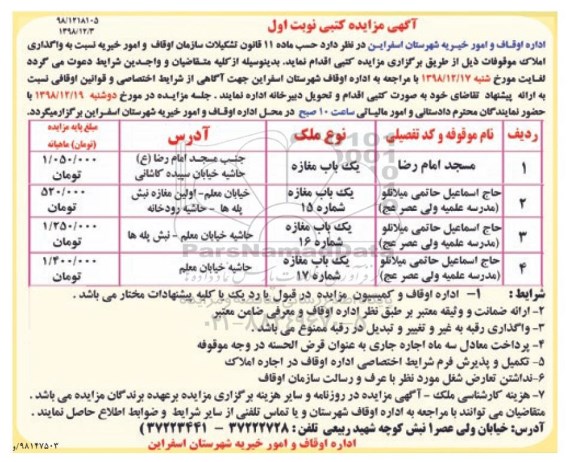 آگهی مزایده کتبی نوبت اول
۹۸/۱۲۱۸۱۰۵
۱۳۹۸/۱۲/۳
اداره اوقاف و امور خیریه شهرستان اسفراین در نظر دارد حسب ماده ۱۱ قانون تشکیلات سازمان اوقاف و امور خیریه نسبت به واگذاری
املاک موقوفات ذیل از طریق برگزاری مزایده کتبی اقدام نماید. بدینوسیله از کلیه متقاضیان و واجدین شرایط دعوت می گردد
لغایت مورخ شنبه ۱۳۹۸/۱۲/۱۷ با مراجعه به اداره اوقاف شهرستان اسفراین جهت آگاهی از شرایط اختصاصی و قوانین اوقافی نسبت
به ارائه پیشنهاد تقاضای خود به صورت کتبی اقدام و تحویل دبیرخانه اداره نمایند . جلسه مزایده در مورخ دوشنبه ۱۳۹۸/۱۲/۱۹ با
حضور نمایندگان محترم دادستانی و امور مالیاتی ساعت ۱۰ صبح در محل اداره اوقاف و امور خیریه شهرستان اسفراین برگزارمیگردد.
ردیف نام موقوفه و کد تفصیلی نوع ملک آدرس مبلغ پایه مزایده (تومان) ماهیانه
۱ مسجد امام رضا یک باب مغازه جنب مسجد امام رضا (ع) حاشیه خیابان سپیده کاشانی ۱/۰۵۰/۰۰۰ تومان
۲ حاج اسماعیل حاتمی میلانلو (مدرسه علمیه ولی عصر عج) یک باب مغازه شماره ۱۵ خیابان معلم- اولین مغازه نبش پله ها - حاشیه رودخانه ۵۲۰/۰۰۰ تومان
۳ حاج اسماعیل حاتمی میلانلو (مدرسه علمیه ولی عصر عج) یک باب مغازه شماره ۱۶ حاشیه خیابان معلم - نبش پله ها ۱/۲۵۰/۰۰۰ تومان
۴ حاج اسماعیل حاتمی میلانلو (مدرسه علمیه ولی عصر عج) یک باب مغازه شماره ۱۷ حاشیه خیابان معلم ۱/۳۰۰/۰۰۰ تومان
ParsNamadData
۰۲۱-۸۸۳۴۹۶۷۰-۸
شرایط : ۱- اداره اوقاف و کمیسیون مزایده در قبول یا رد یک یا کلیه پیشنهادات مختار می باشد .
۲- ارائه ضمانت و وثیقه معتبر بر طبق نظر اداره اوقاف و معرفی ضامن معتبر
۳- واگذاری رقبه به غیر و تغییر و تبدیل در رقبه ممنوع می باشد .
۴- پرداخت معادل سه ماه اجاره جاری به عنوان قرض الحسنه در وجه موقوفه
۵- تکمیل و پذیرش فرم شرایط اختصاصی اداره اوقاف در اجاره املاک
۶-نداشتن تعارض شغل مورد نظر با عرف و رسالت سازمان اوقاف
۷- هزینه کارشناسی ملک - آگهی مزایده در روزنامه و سایر هزینه برگزاری مزایده برعهده برندگان مزایده می باشد .
متقاضیان می توانند با مراجعه به اداره اوقاف شهرستان و یا تماس تلفنی از سایر شرایط و ضوابط اطلاع حاصل نمایند .
آدرس: خیابان ولی عصر۱ نبش کوچه شهید ربیعی تلفن : ۳۷۲۲۲۷۲۸ - ۳۷۲۲۳۴۴۱ )
اداره اوقاف و امور خیریه شهرستان اسفراین
۹۸۱۲۷۵۰۳/و